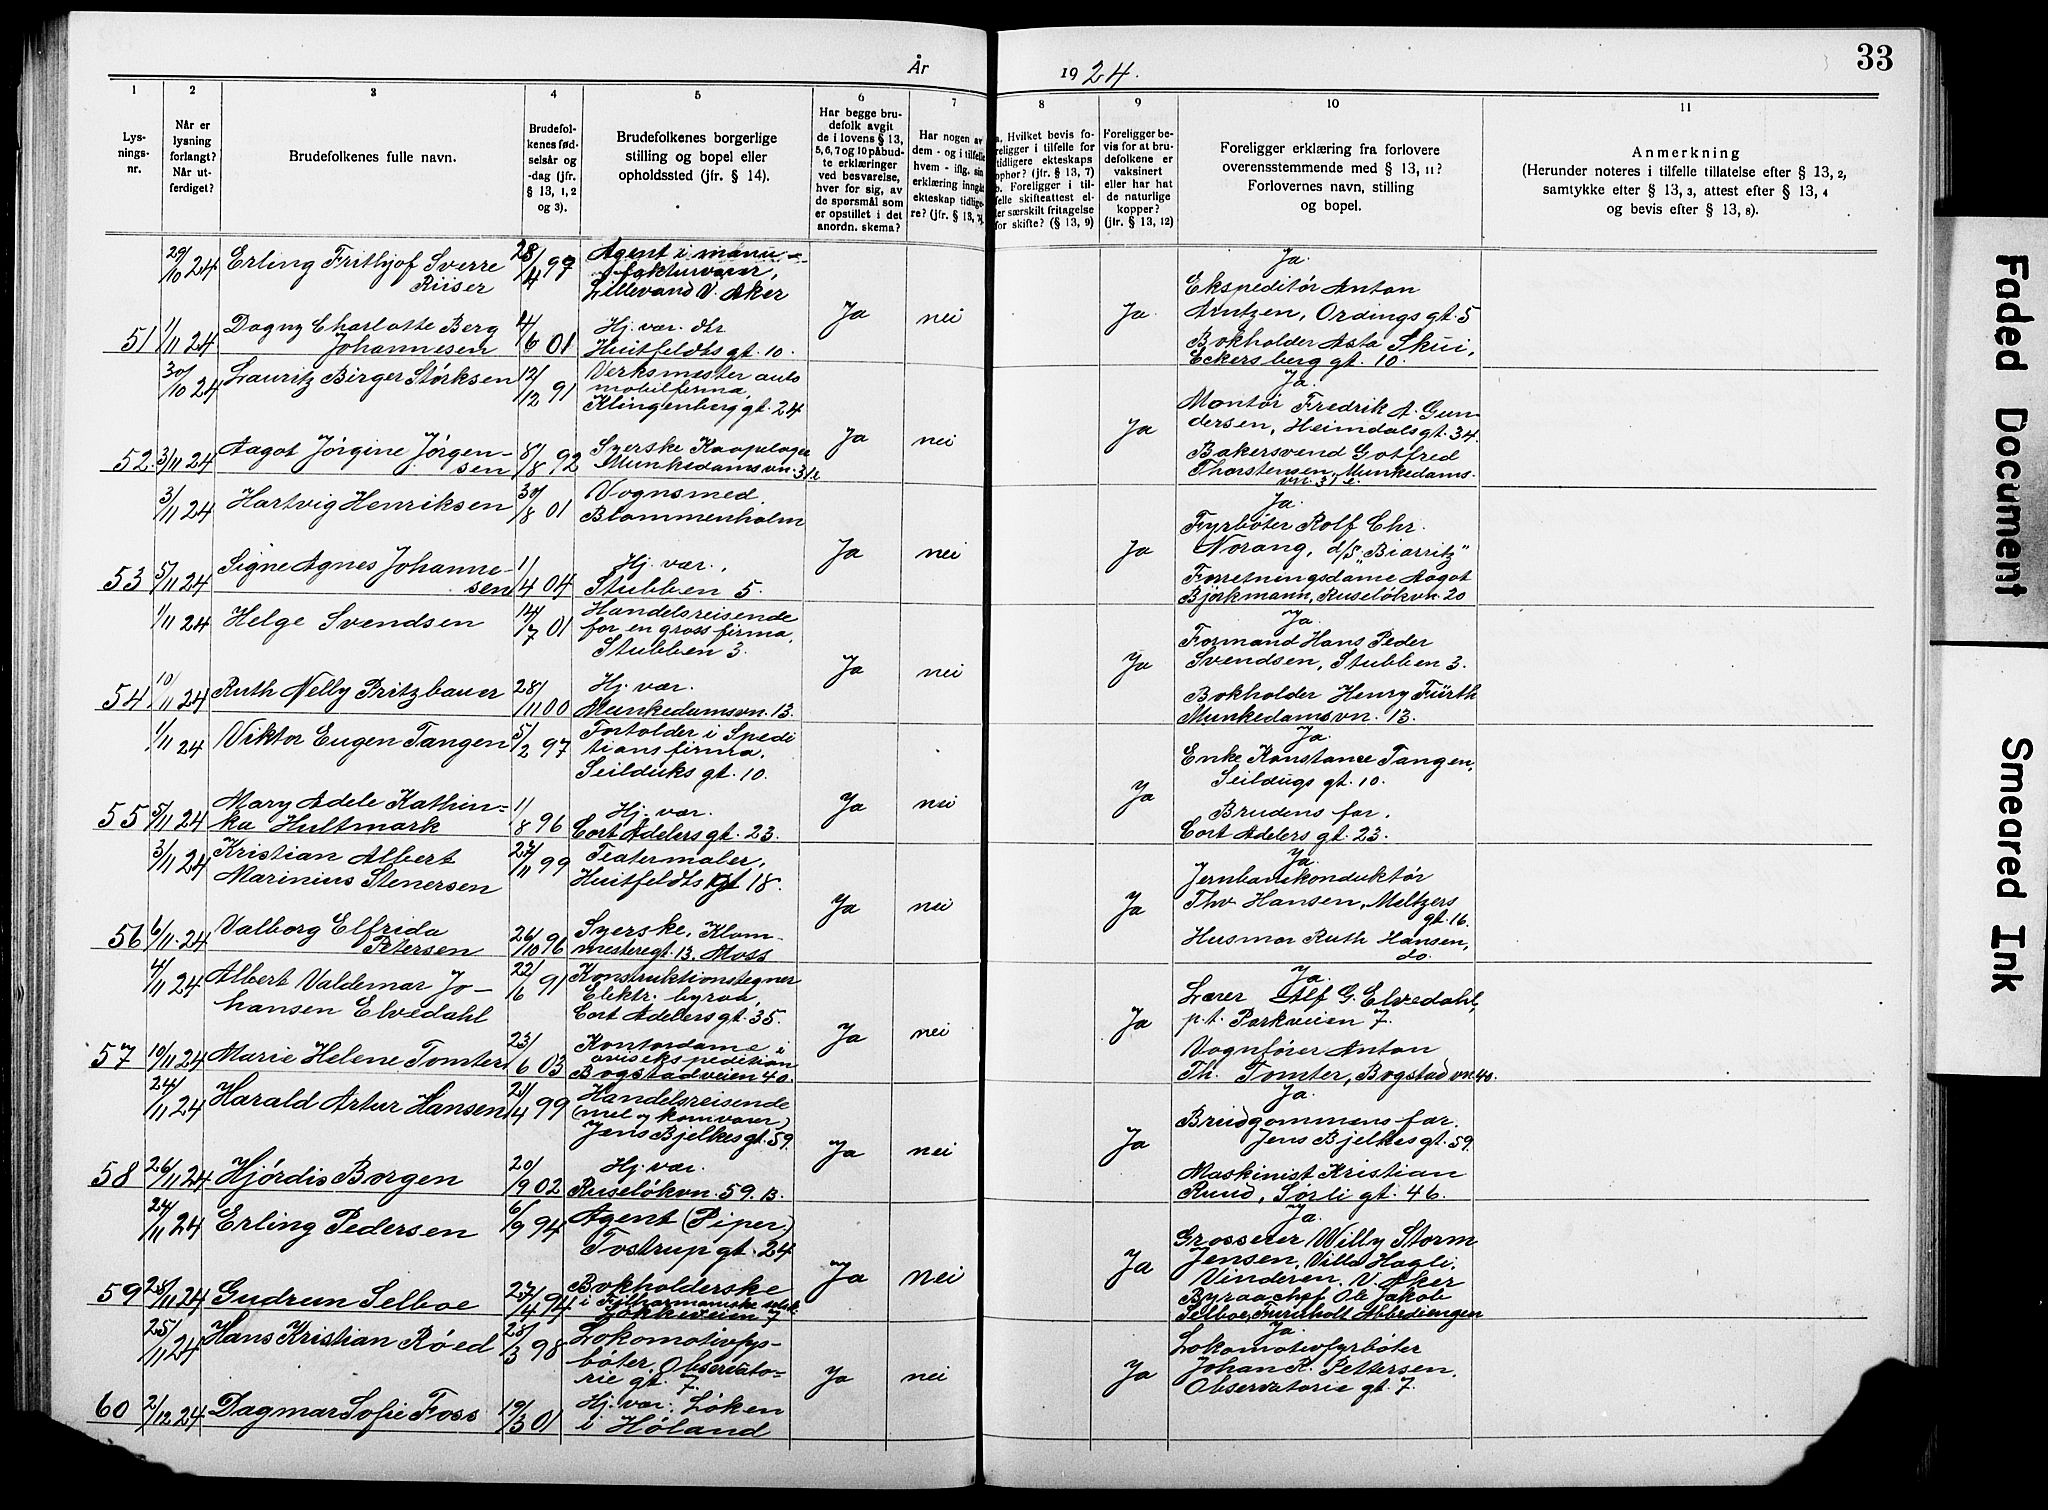 33
År 1924.
1 2 3 4 5 6 7 8 9 10 11
Lys-
nings-
nr.
Når er
lysning
forlangt?
Når ut-
ferdiget?
Brudefolkenes fulle navn.
Brudefol-
kenes fød-
selsår og
-dag (jfr.
§ 13, 1, 2
og 3).
Brudefolkenes borgerlige
stilling og bopel eller
opholdssted (jfr. § 14).
Har begge bru-
defolk avgit
de i lovens § 13,
5, 6, 7 og 10 påbud-
te erklæringer
ved besvarelse,
hver for sig, av
de spørsmål som
er opstillet i det
anordn. skema?
Har nogen av
dem - og i tilfelle
hvem - iflg. sin
erklæring inngått
ekteskap tidlige-
re? (jfr. § 13, 7).
a. Hvilket bevis fo-
religger i tilfelle for
tidligere ekteskaps
ophør? (jfr. § 13, 7)
b. Foreligger i til-
felle skifteattest el-
ler særskilt fritagelse
for skifte? (§ 13, 9)
Foreligger be-
vis for at bru-
defolkene er
vaksinert
eller har hat
de naturlige
kopper?
(jfr. § 13, 12)
Foreligger erklæring fra forlovere
overensstemmende med § 13, 11?
Forlovernes navn, stilling
og bopel.
Anmerkning
(Herunder noteres i tilfelle tillatelse efter § 13, 2,
samtykke efter § 13, 3, attest efter § 13, 4
og bevis efter § 13, 8).
29/10 24 Erling Frithjof Sverre
Riiser
28/4 97
Agent i manu-
fakturvarer,
Lillevand V. Aker
51 1/11 24 Dagny Charlotte Berg
Johannesen
4/6 01
Hj. vær. dtr
Huitfeldts gt. 10.
Ja nei Ja.
Ja.
Ekspeditør Anton
Arntzen, Ordings gt. 5
Bokholder Asta Skui,
Eckersberg gt. 10.
30/10 24 Lauritz Birger Størksen 12/12 91
Verksmester auto
mobilfirma,
Klingenberg gt. 24
52. 3/11 24 Aagot Jørgine Jørgen-
sen
8/8 92
Syerske
Munkedamsvn. 31 e
Ja nei Ja
Ja.
Montør Fredrik A. Gun-
dersen, Heimdalsgt. 34
Bakersvend Gotfred
Thorstensen, Munkedams-
vn. 31 e.
3/11 24 Hartvig Henriksen 30/8 01
Vognsmed
Blommenholm
53 5/11 24 Signe Agnes Johanne-
sen
1/4 04
Hj. vær.,
Stubben 5.
Ja nei Ja
Ja.
Fyrbøter Rolf Chr.
Norang, d/s "Biarritz"
Forretningsdame Aagot
Bjørkmann, Ruseløkvn. 20
1/11 24 Helge Svendsen 14/7 01
Handelsreisende
for en gross firma,
Stubben 3.
54 10/11 24 Ruth Nelly Pritzbauer 28/11 00
Hj. vær.
Munkedamsvn. 13.
Ja nei Ja
Ja.
Formand Hans Peder
Svendsen, Stubben 3.
Bokholder Henry Fürth
Munkedamsvn. 13.
1/11 24 Viktor Eugen Tangen 5/2 97
Fortolder i Spedi
tions firma,
Seilduks gt. 10.
55 5/11 24 Mary Adele Kathin-
ka Hultmark
1/8 96
Hj. vær.
Cort Adelers gt. 23.
Ja nei Ja
Ja.
Enke Konstance Tangen,
Seildugs gt. 10.
Brudens far,
Cort Adelers gt. 23.
3/11 24 Kristian Albert
Marinius Stenersen
27/11 99
Teatermaler,
Huitfeldts gt 18.
56 6/11. 24 Valborg Elfrida
Petersen
26/10 96
Syerske, Klom-
mesteregt. 13. Moss
Ja nei Ja
Ja.
Jernbanekonduktør
Thv Hansen, Meltzers
gt. 16.
Husmor Ruth Hansen,
do.
4/11 24 Albert Valdemar Jo-
hansen Elvedahl
22/6 91
Konstruktionstegner
Elektr. byraa,
Cort Adelers gt. 35.
57 10/11 24 Marie Helene Tomter 23/6 03
Kontordame i
avisekspedition
Bogstadveien 40.
Ja nei Ja
Ja.
Lærer Alf G. Elvedahl,
p.t. Parkveien 7.
Vognfører Anton
Th. Tomter, Bogstadvn 40.
24/11 24 Harald Artur Hansen 21/4 99
Handelsreisende
(mel og kornvarer)
Jens Bjelkes gt. 59.
58 26/11 24 Hjørdis Borgen 20/9 02
Hj. vær.
Ruseløkvn. 59. B.
Ja nei Ja
Ja.
Brudgommens far.
Jens Bjelkes gt. 59.
Maskinist Kristian
Ruud, Sørli gt. 46.
24/11 24 Erling Pedersen 6/9 94
Agent (Piper)
Tostrup gt. 24
59 28/11 24 Gudrun Selboe 27/4 94
Bokholderske
i Filharmoniske selsk.
Løkkeveien 7
Ja nei Ja
Ja.
Grosserer Willy Storm
Jensen, Villa Hagli,
Vinderen. V. Aker
Byraachef Ole Jakob
Selboe, Furuholt Abbediengen
25/11 24 Hans Kristian Røed 28/3 98
Lokomotivfyr-
bøter, Observato-
rie gt. 7.
60 2/12 24 Dagmar Sofie Foss 19/3 01
Hj. vær. Løken
i Høland
Ja nei Ja
Ja.
Lokomotivfyrbøter
Johan R. Pettersen,
Observatorie gt. 7.
Faded Document
Smeared Ink